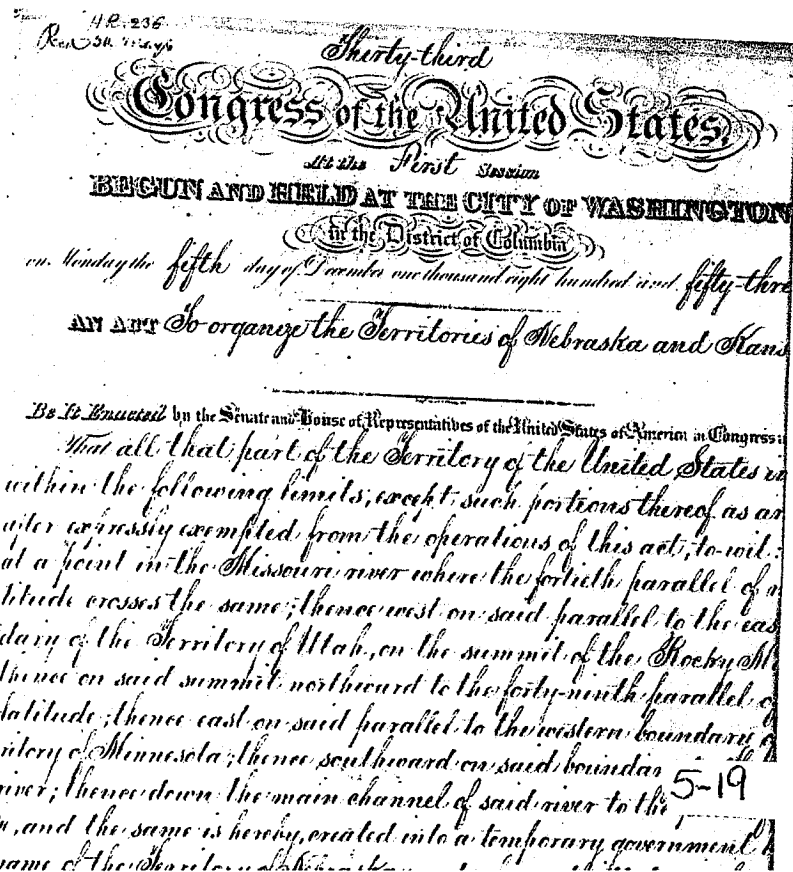 H.R. 236
Thirty-third
Congress of the United States,
At the First Session
BEGUN AND HELD AT THE CITY OF WASHINGTON
in the District of Columbia
on Monday the fifth day of December one thousand eight hundred and fifty-thre
AN ACT To organize the Territories of Nebraska and Kans
Be It Enacted by the Senate and House of Representatives of the United States of America in Congress
That all that part of the Territory of the United States in
within the following limits, except such portions thereof as ar
after expressly exempted from the operations of this act, to-wit:
at a point in the Missouri river where the fortieth parallel of n
titude crosses the same; thence west on said parallel to the eas
dary of the Territory of Utah, on the summit of the Rocky M
thence on said summit northward to the forty-ninth parallel o
latitude; thence east on said parallel to the western boundary o
ritory of Minnesota; thence southward on said boundar
5-19
river; thence down the main channel of said river to the
, and the same is hereby, created into a temporary government
name of the Territory of Nebraska